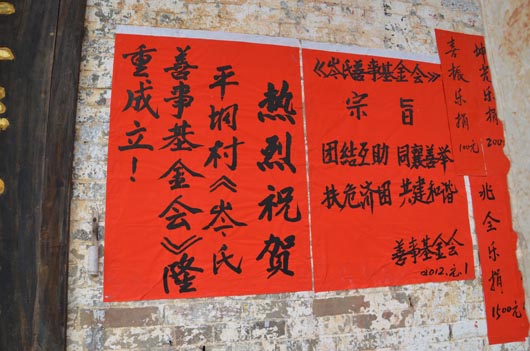 热烈祝贺
平垌村《岑氏
善事基金会》隆
重成立！
《岑氏善事基金会》
宗旨
团结互助 同襄善举
扶危济困 共建和谐
善事基金会
2012.元.1
喜振乐捐100元
兆全乐捐1500元